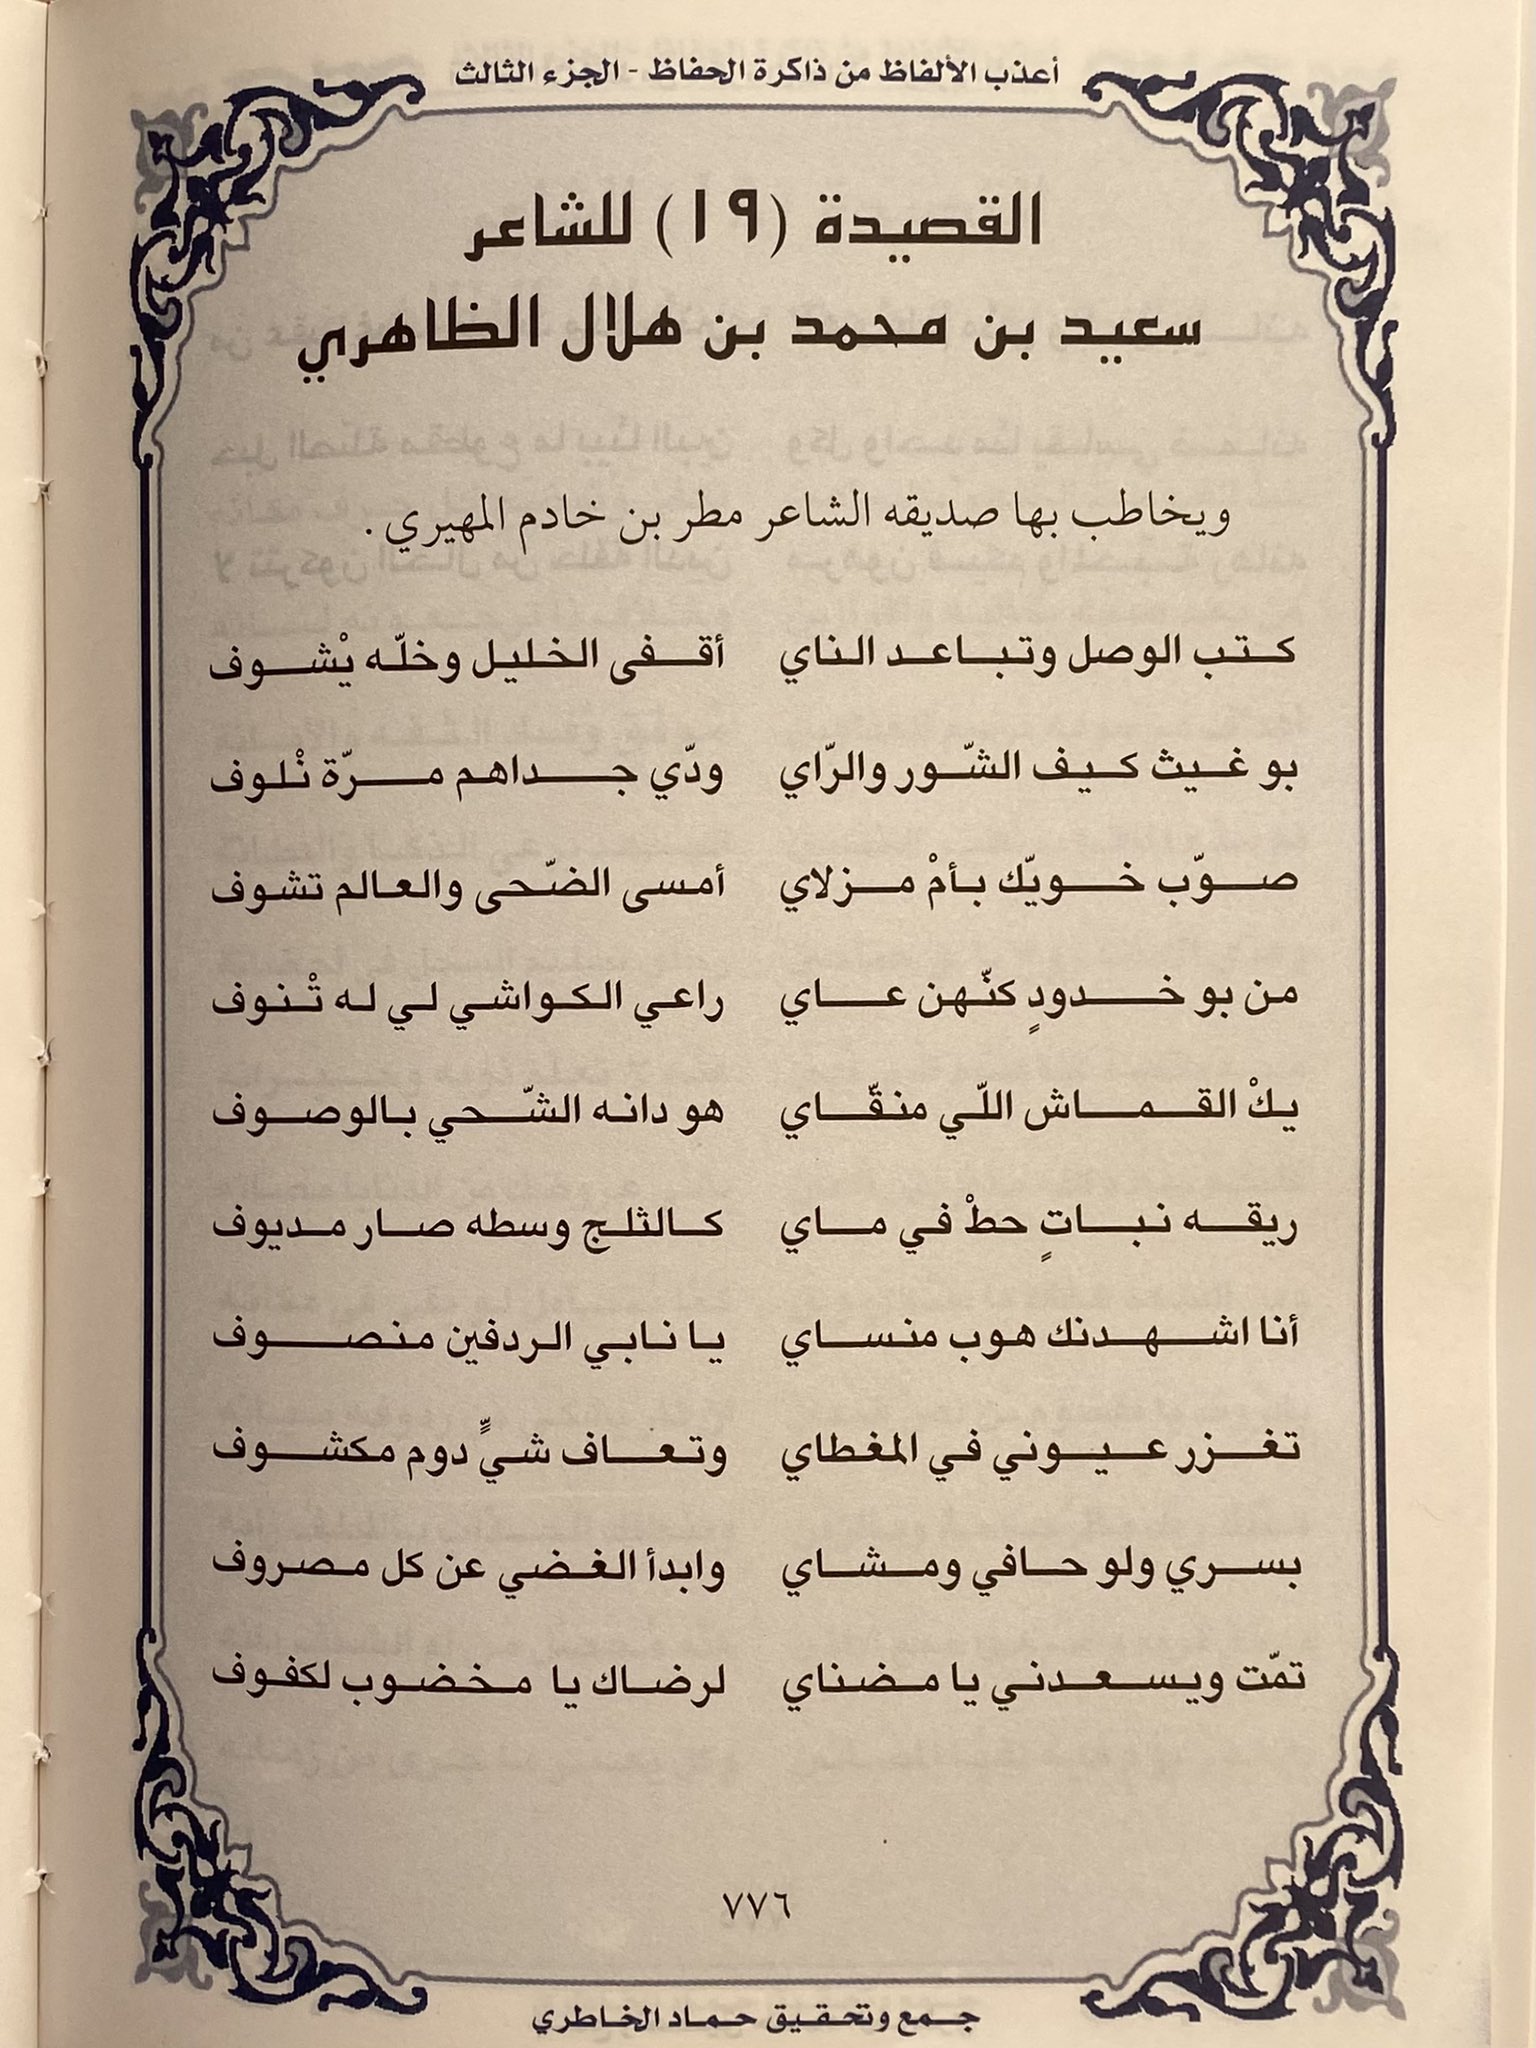 أعذب الألفاظ من ذاكرة الحفاظ - الجزء الثالث
القصيدة (١٩) للشاعر
سعيد بن محمد بن هلال الظاهري
ويخاطب بها صديقه الشاعر مطر بن خادم المهيري .
كتب الوصل وتباعد الناي أقفى الخليل وخلّه يْشوف
بو غيث كيف الشّور والرّاي ودّي جداهم مرّة نْلوف
صوّب خويّك بأمْ مزلاي أمسى الضّحى والعالم تشوف
من بو خدودٍ كنّهن عاي راعي الكواشي لي له تْنوف
يكْ القماش اللّي منقّاي هو دانه الشّحي بالوصوف
ريقه نباتٍ حطْ في ماي كالثلج وسطه صار مديوف
أنا اشهدنك هوب منساي يا نابي الردفين منصوف
تغزر عيوني في المغطاي وتعاف شيٍّ دوم مكشوف
بسري ولو حافي ومشاي وابدأ الغضي عن كل مصروف
تمّت ويسعدني يا مضناي لرضاك يا مخضوب لكفوف
٧٧٦
جمع وتحقيق حماد الخاطري